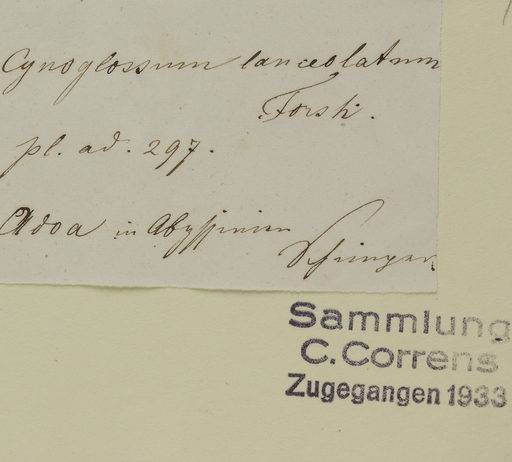 Cynoglossum lanceolatum
Forsk.
pl. ad. 297.
Adoa in Abyssinien
Schimper.
Sammlung
C. Correns
Zugegangen 1933